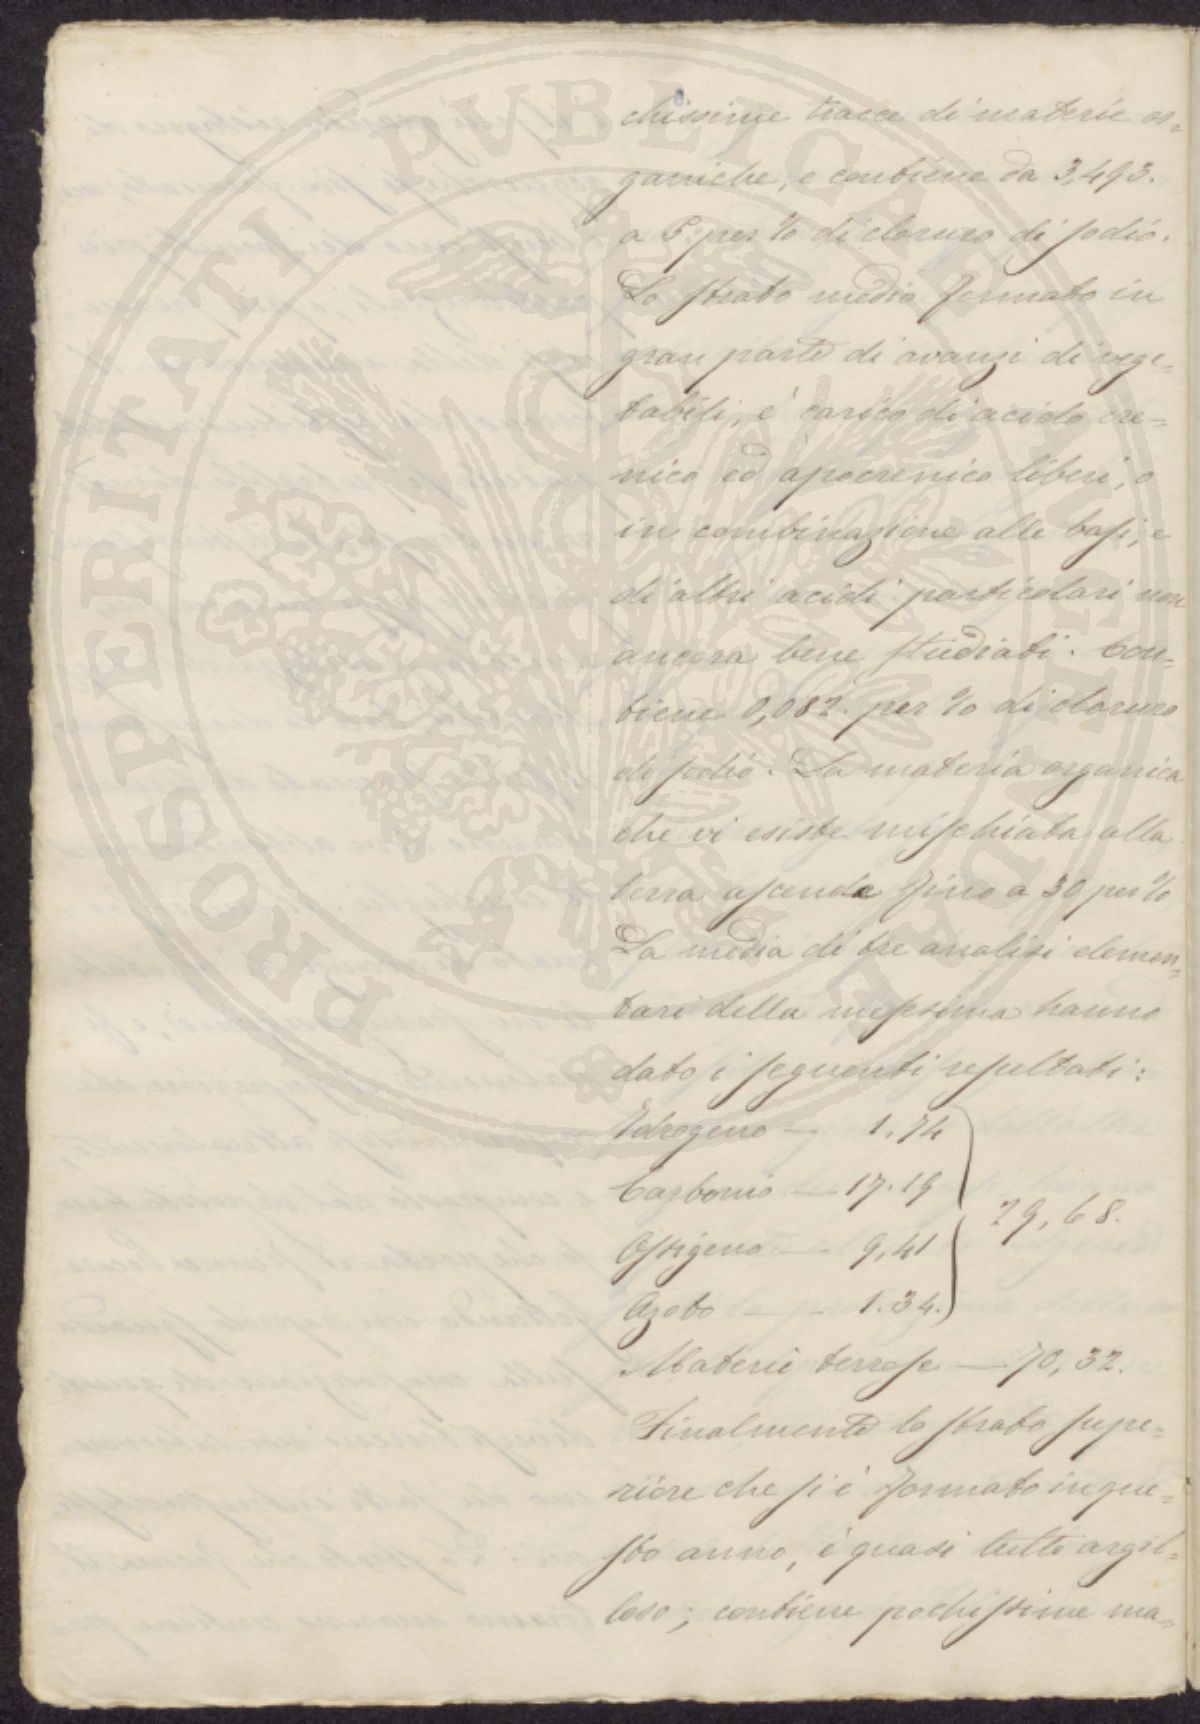 chissime tracce di materie or=
ganiche, e contiene da 3,493.
a 5 per % di cloruro di sodio.
Lo strato medio formato in
gran parte di avanzi di vege=
tabili, è carico di acido cre=
nico ed apocrenico liberi, o
in combinazione alle basi, e
di altri acidi particolari non
ancora bene studiati. Con=
tiene 0,082. per % di cloruro
di sodio. La materia organica
che vi esiste mischiata alla
terra ascende fino a 30 per %
La media di tre analisi elemen=
tari della medesima hanno
dato i seguenti resultati:
Idrogeno — 1.74
Carbonio — 17.19
29,68.
Ossigeno — 9,41
Azoto — - 1.34.
Materie terrose — 70,32.
Finalmente lo strato supe=
riore che si è formato in que=
sto anno, è quasi tutto argil=
loso; contiene pochissime ma=
PROSPERITATI PUBLICAE AUGENDAE